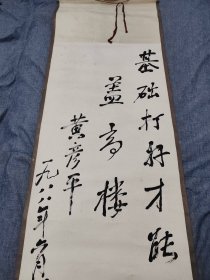 基础打好才能
盖高楼
黄彦平
一九八八年六月